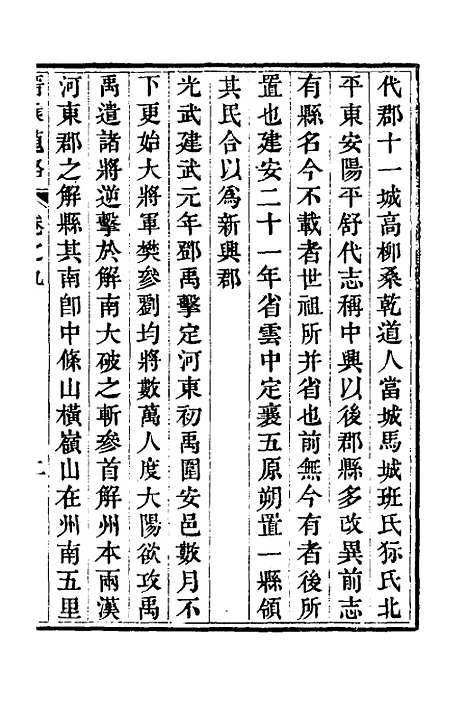 代郡十一城高柳桑乾道人當城馬城班氏狋氏北
平東安陽平舒代志稱中興以後郡縣多改異前志
有縣名今不載者世祖所并省也前無今有者後所
置也建安二十一年省雲中定襄五原朔置一縣領
其民合以爲新興郡
光武建武元年鄧禹擊定河東初禹圍安邑數月不
下更始大將軍樊參劉均將數萬人度大陽欲攻禹
禹遣諸將逆擊於解南大破之斬參首解州本兩漢
河東郡之解縣其南卽中條山橫嶺山在州南五里
卷之九